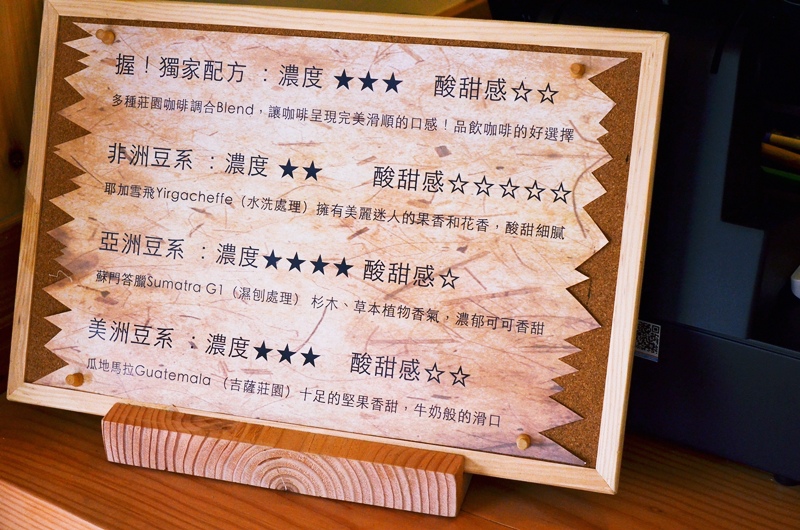 握！獨家配方：濃度★★★ 酸甜感☆☆
多種莊園咖啡調合Blend，讓咖啡呈現完美滑順的口感！品飲咖啡的好選擇
非洲豆系：濃度★★ 酸甜感☆☆☆☆☆
耶加雪飛Yirgacheffe（水洗處理）擁有美麗迷人的果香和花香，酸甜細膩
亞洲豆系：濃度★★★★ 酸甜感☆
蘇門答臘Sumatra G1（濕刨處理） 杉木、草本植物香氣，濃郁可可香甜
美洲豆系：濃度★★★ 酸甜感☆☆
瓜地馬拉Guatemala（吉薩莊園）十足的堅果香甜，牛奶般的滑口